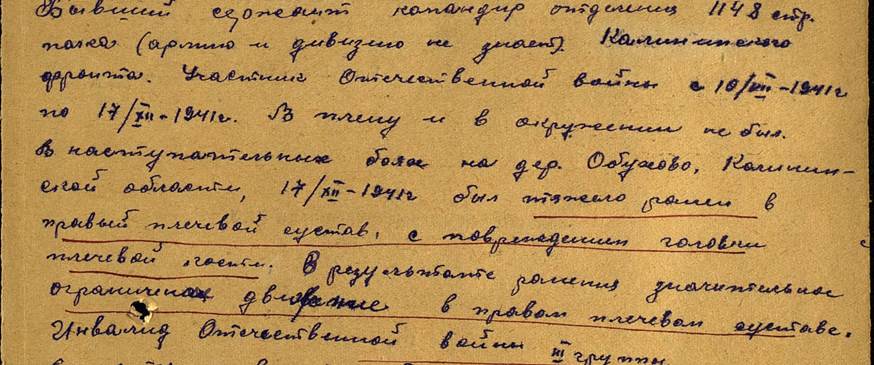 Бывший сержант командир отделения 1148 стр.
полка (армию и дивизию не знает). Калининского
фронта. Участник Отечественной войны с 10/VIII-1941г
по 17/XII-1941г. В плену и в окружении не был.
В наступательных боях на дер. Обухово, Калинин-
ской области, 17/XII-1941г был тяжело ранен в
правый плечевой сустав, с повреждением головки
плечевой кости. В результате ранения значительное
ограничение движение в правом плечевом суставе.
Инвалид Отечественной войны III группы.